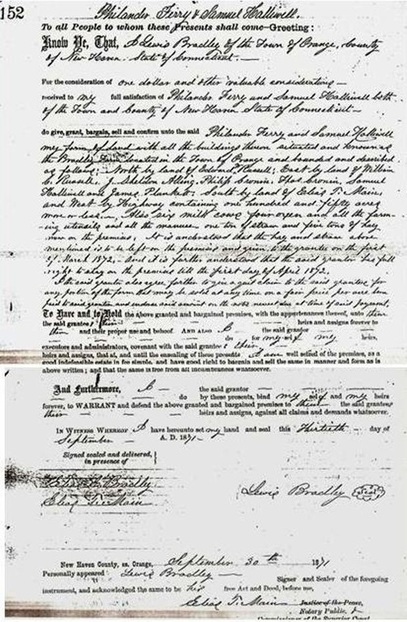 152
Philander Ferry & Samuel Halliwell.
To all People to whom these Presents shall come—Greeting:
Know Ye, That, I Lewis Bradley of the Town of Orange, County
of New Haven State of Connecticut.
For the consideration of one dollar and other valuable considerations
received to my full satisfaction of Philander Ferry and Samuel Halliwell both
of the Town and County of New Haven State of Connecticut
do give, grant, bargain, sell and confirm unto the said Philander Ferry and Samuel Halliwell
my farm of land with all the buildings thereon situated and known as
the Bradley Farm located in the Town of Orange and bounded and described
as follows; North by land of Edward Russell, East by land of William
C. Russell, J. Shelden Alling, Philip Bronson, Samuel
Halliwell and James Plunkett South by land of Elias T. Main,
and West by Highway containing one hundred and fifty acres
more or less. Also six milch cows four oxen and all the farm-
ing utensils and all the manure one ton of straw and five tons of hay
now on the premises. It is understood that the hay and straw above
mentioned is to be left on the premises and given to the grantees on the first
of March 1872, and it is further understood that the said grantor has full
right to stay on the premises till the first day of April 1872.
The said grantor also agrees further to give a quit claim to the said grantees, for
any portion of the farm that may be sold at any time on a fair price per acre being
paid to said grantor and endorse said amount on the note at time of said payment,
To Have and to Hold the above granted and bargained premises, with the appurtenances thereof, unto them
the said grantees their heirs and assigns forever to
their own proper use and behoof. And also I the said grantor
do for my self my heirs,
executors and administrators, covenant with the said grantees their
heirs and assigns, that at, and until the ensealing of these presents I am well seized of the premises, as a
good indefeasible estate in fee simple, and have good right to bargain and sell the same in manner and form as is
above written; and that the same is free from all incumbrances whatsoever.
And Furthermore, I the said grantor
do by these presents, bind my self and my heirs
forever, to WARRANT and defend the above granted and bargained premises to them the said grantees
their heirs and assigns, against all claims and demands whatsoever.
In Witness Whereof I have hereunto set my hand and seal this Thirtieth day of
September A. D. 1871
Signed sealed and delivered,
in presence of
Bradley
Elias T. Main
Lewis Bradley
New Haven County, ss. Orange, September 30th 1871
Personally appeared Lewis Bradley
Signer and Sealer of the foregoing
instrument, and acknowledged the same to be his free Act and Deed, before me,
Elias T. Main Justice of the Peace,
Notary Public,
Commissioner of the Superior Court